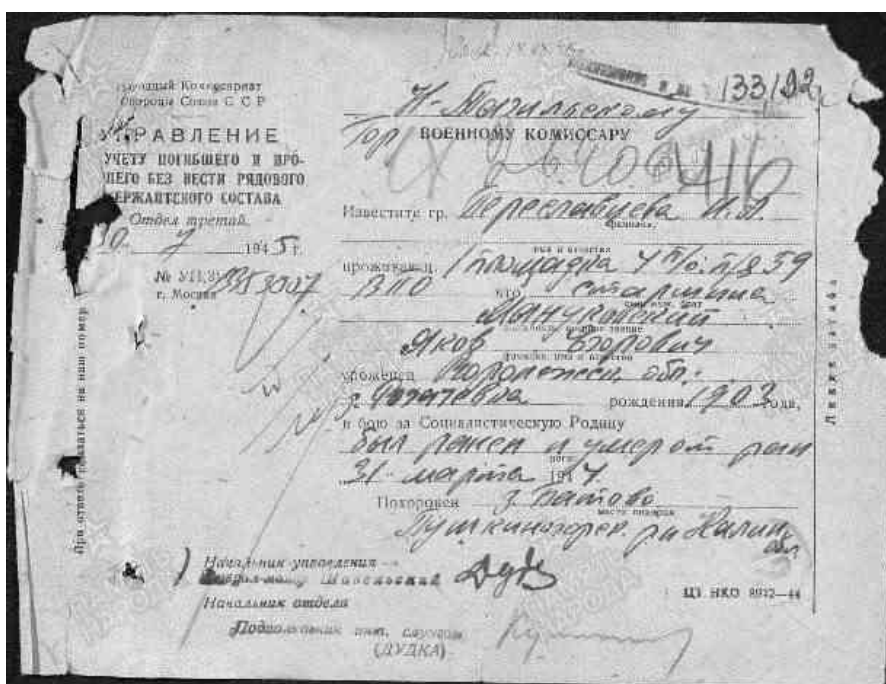 133192с
Народный Комиссариат
Обороны Союза С С Р
УПРАВЛЕНИЕ
УЧЕТУ ПОГИБШЕГО И ПРО-
ШЕГО БЕЗ ВЕСТИ РЯДОВОГО
СЕРЖАНТСКОГО СОСТАВА
Отдел третий
10 7 1945 г.
№ УП
г. Москва
При ответе ссылаться на наш номер
Н-Тагильскому
Гор ВОЕННОМУ КОМИССАРУ
416
Известите гр. Переславцева
фамилия,
имя и отчество
проживающ 1 площадка 4 п/о. п/я 859
что старшина
Мануковский
воинское звание
Яков Егорович
фамилия, имя и отчество
уроженец Воронежск. обл.
рождения 1903 года,
в бою за Социалистическую Родину
был ранен и умер от ран
31 марта 1944
Похоронен д. Батово
место похорон
Пушкиногорск. р-н Калин. обл.
Линия отреза
Начальник управления
Начальник отдела
Подполковник инт. службы
(ДУДКА)
ЦТ НКО 8912—44